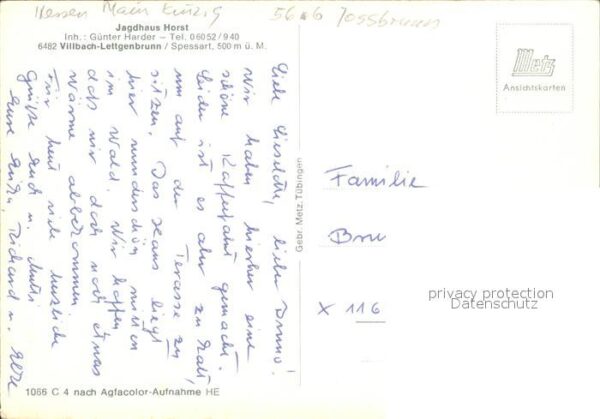 Hessen Main Kinzig
56.6 Jossbrunn
Jagdhaus Horst
Inh.: Günter Harder – Tel. 06052/940
6482 Villbach-Lettgenbrunn / Spessart, 500 m ü. M.
Metz
Ansichtskarten
Liebe Lieselotte, lieber Bruno!
Wir haben hierher eine
schöne Kaffeefahrt gemacht.
Leider ist es aber zu kalt,
um auf der Terasse zu
sitzen. Das Haus liegt
hier wunderschön mitten
im Wald. Wir hoffen
daß wir doch noch etwas
Wärme abbekommen.
Für heut viele herzliche
Grüße Euch u. Mutti
Eure Erika, Richard u. Elke
Gebr. Metz, Tübingen
Familie
Bru
X 116
privacy protection
Datenschutz
1066 C 4 nach Agfacolor-Aufnahme HE